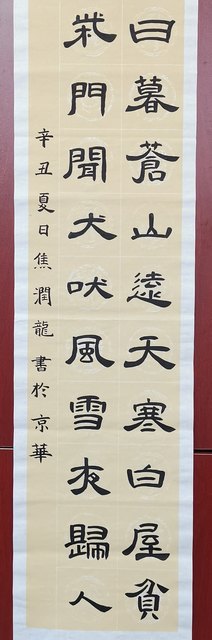 日暮蒼山遠天寒白屋貧
柴門聞犬吠風雪夜歸人
辛丑夏日焦潤龍書於京華